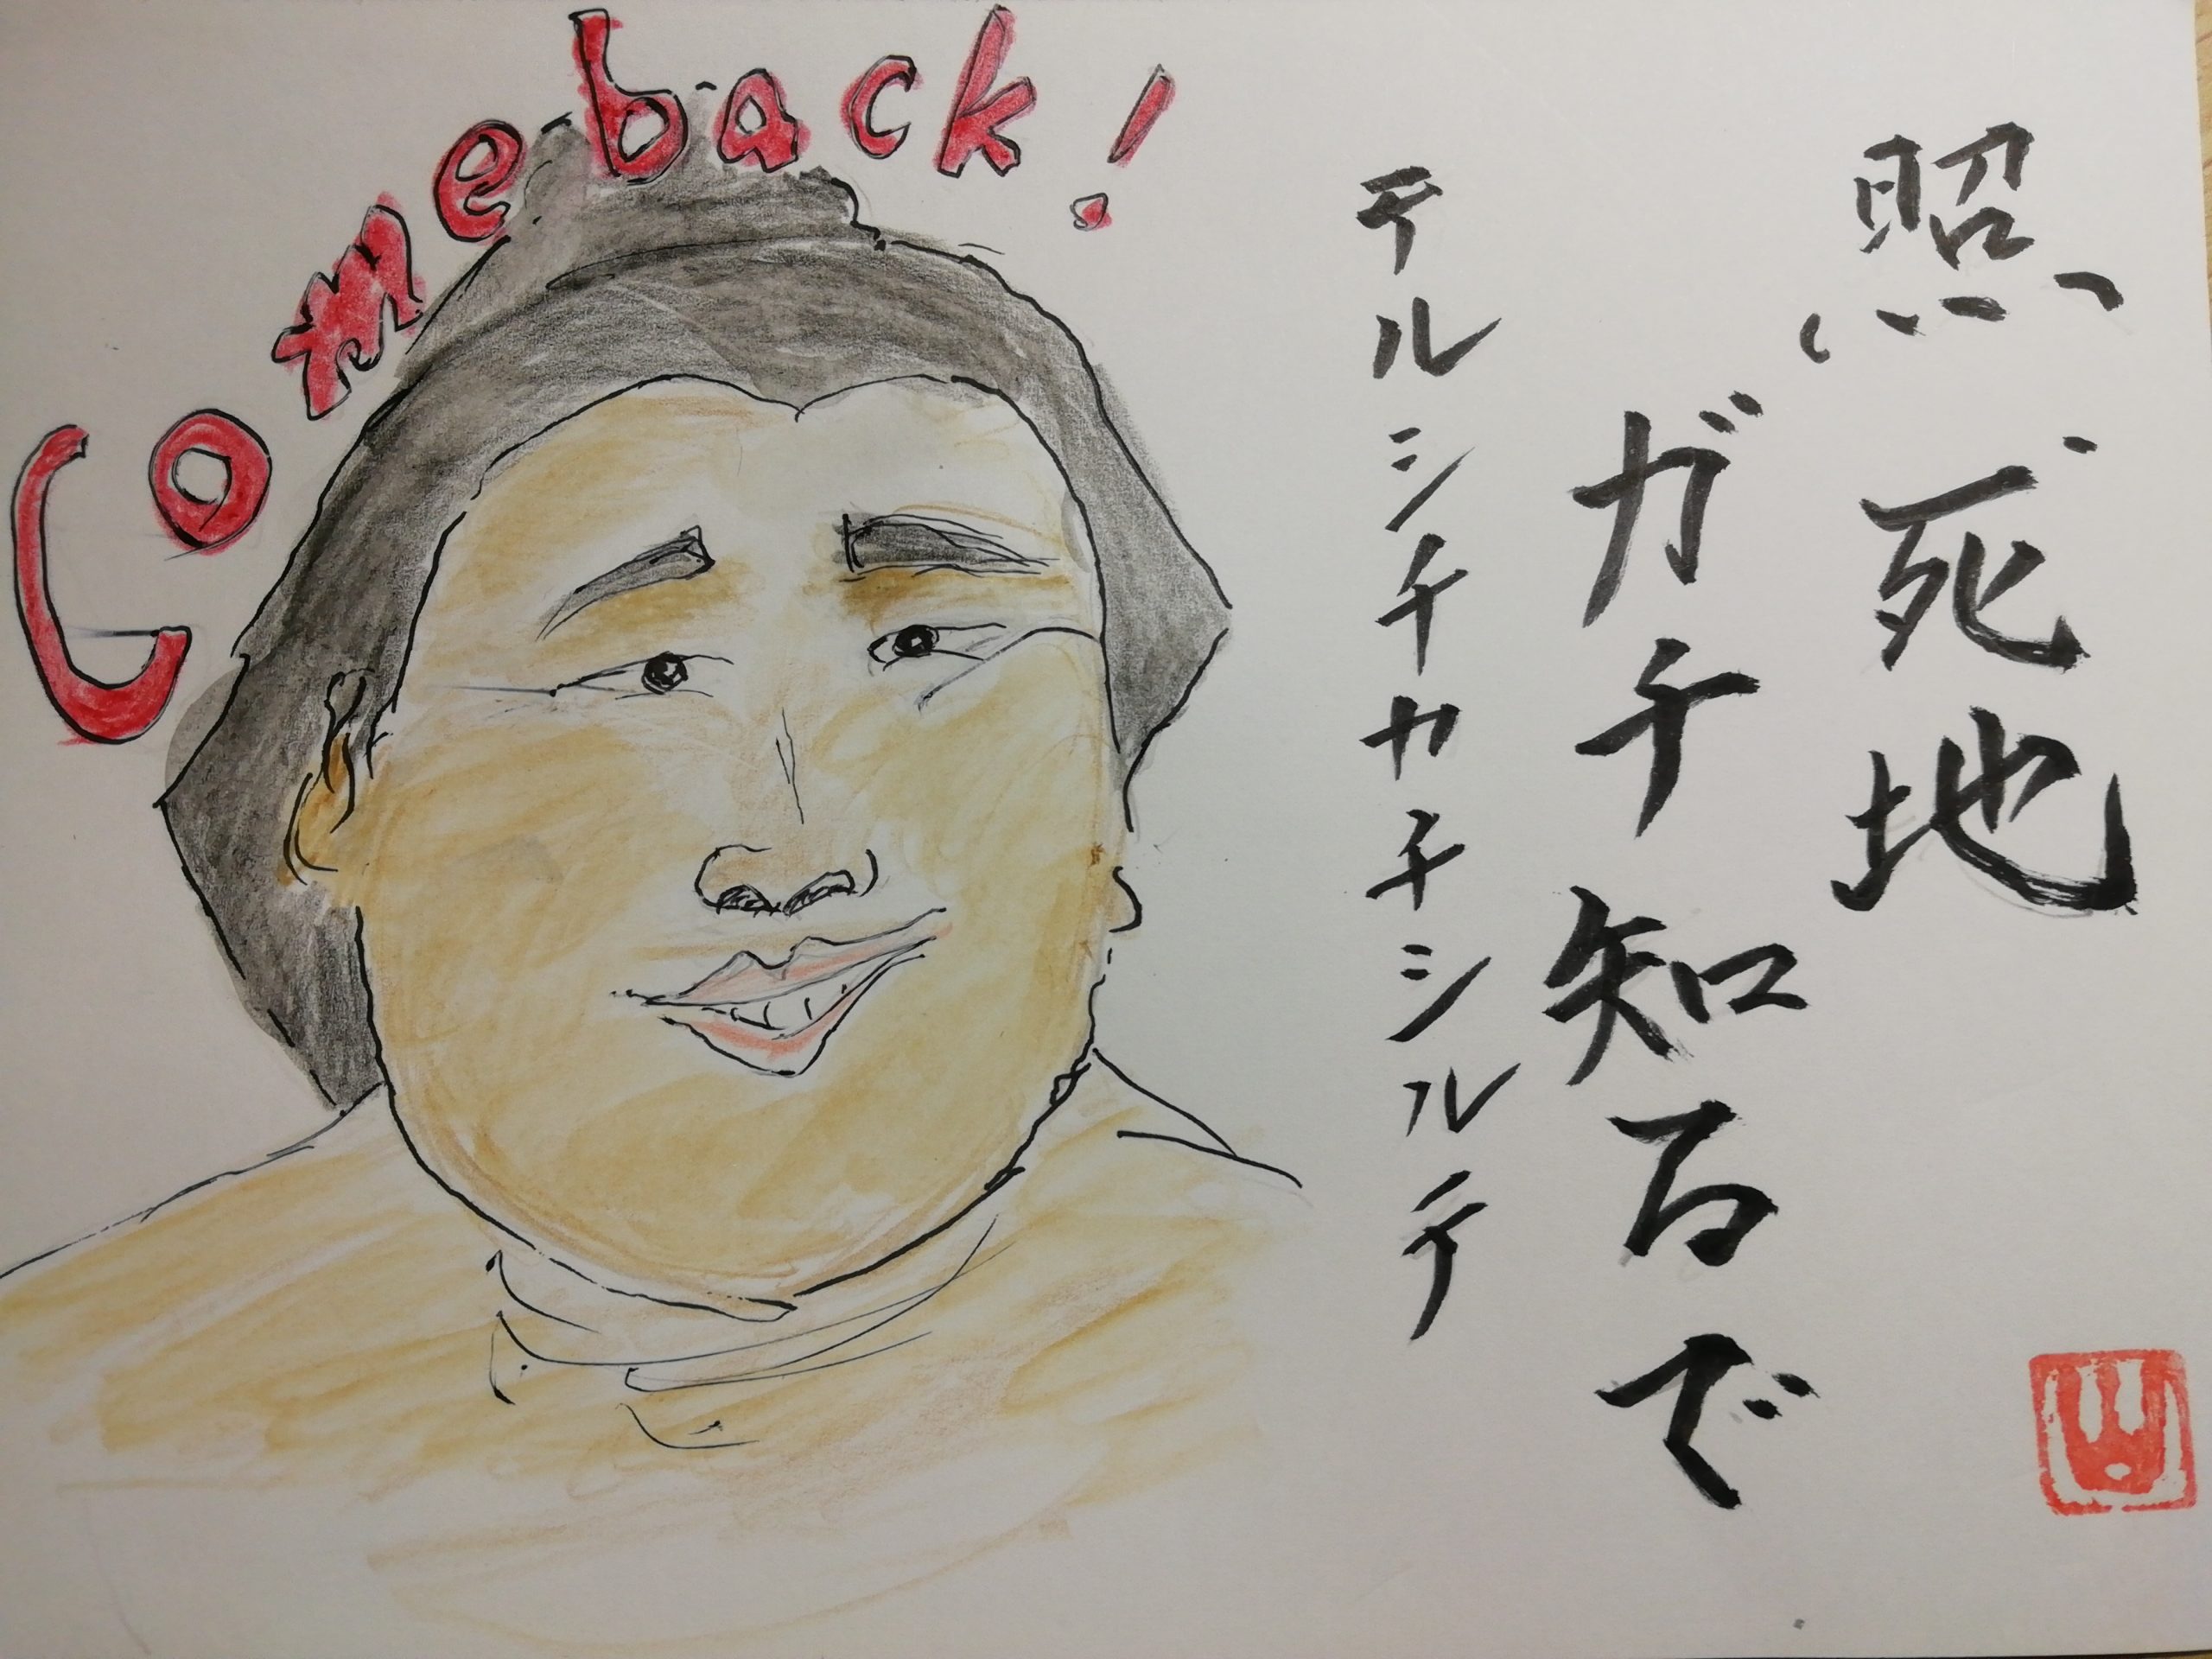 Come back!
照、死地
ガチ知るで
テルシチカチシルテ
山